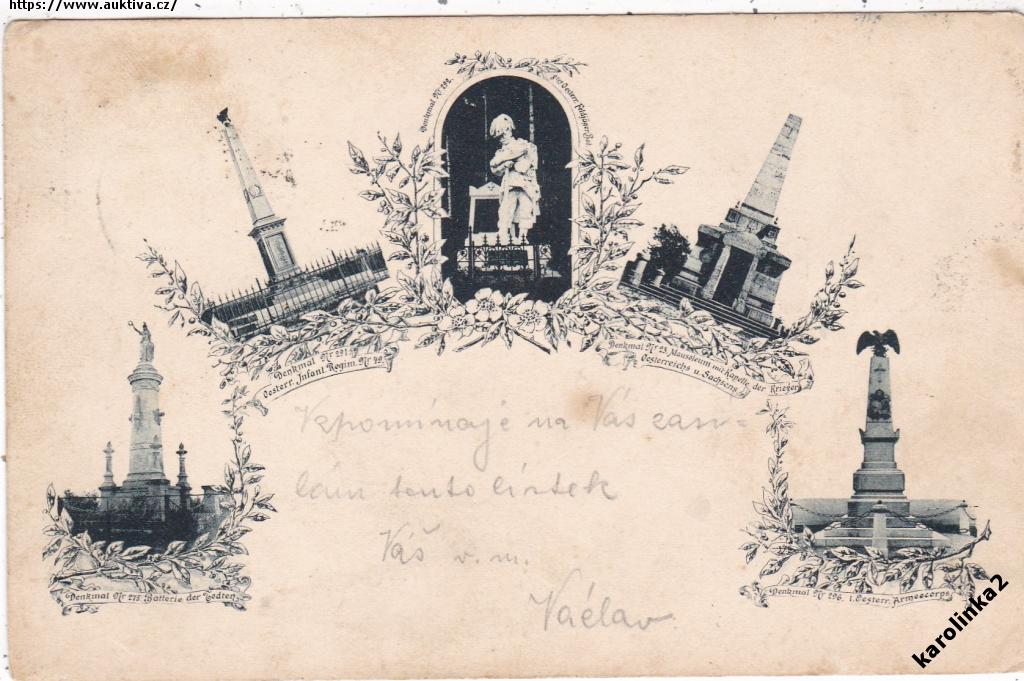 https://www.auktiva.cz/
Denkmal Nr 292. für Oesterr. Feldjäger-Bat.
Denkmal Nr 291.
Oesterr. Infant. Regim. Nr 49.
Denkmal Nr 23, Mausoleum mit Kapelle der Krieger
Oesterreichs u. Sachsens
Vzpomínaje na Vás zasí-
lám tento lístek
Váš v. m.
Václav
Denkmal Nr 275. Batterie der Todten
Denkmal Nr 296. 1. Oesterr. Armeecorps.
karolinka2